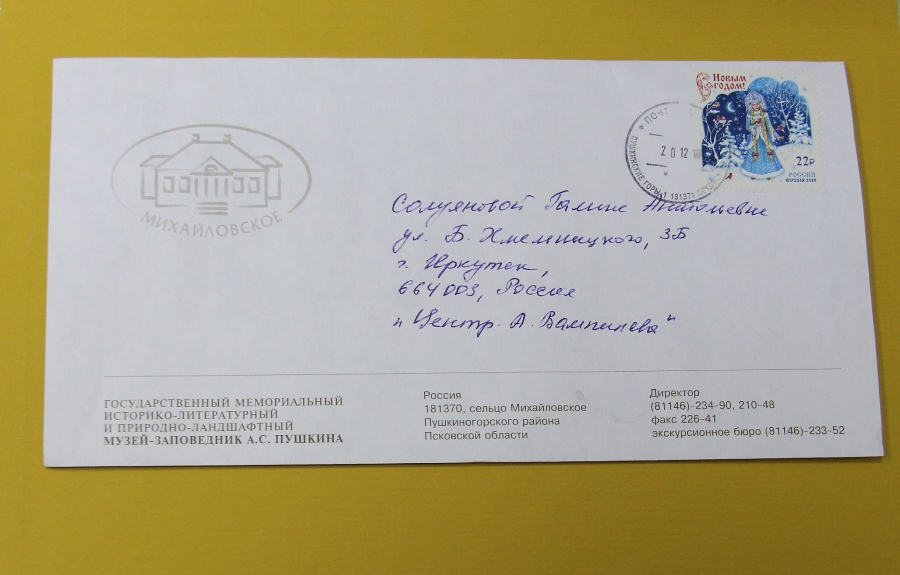 С Новым
годом!
22р
РОССИЯ
ПОЧТ
20 12 18
ПУШКИНСКИЕ ГОРЫ 1 181371
МИХАЙЛОВСКОЕ
Солуяновой Галине Анатольевне
ул. Б. Хмельницкого, 3Б
г. Иркутск,
664003, Россия
"Центр. А. Вампилова"
ГОСУДАРСТВЕННЫЙ МЕМОРИАЛЬНЫЙ
ИСТОРИКО-ЛИТЕРАТУРНЫЙ
И ПРИРОДНО-ЛАНДШАФТНЫЙ
МУЗЕЙ-ЗАПОВЕДНИК А.С. ПУШКИНА
Россия
181370, сельцо Михайловское
Пушкиногорского района
Псковской области
Директор
(81146)-234-90, 210-48
факс 226-41
экскурсионное бюро (81146)-233-52